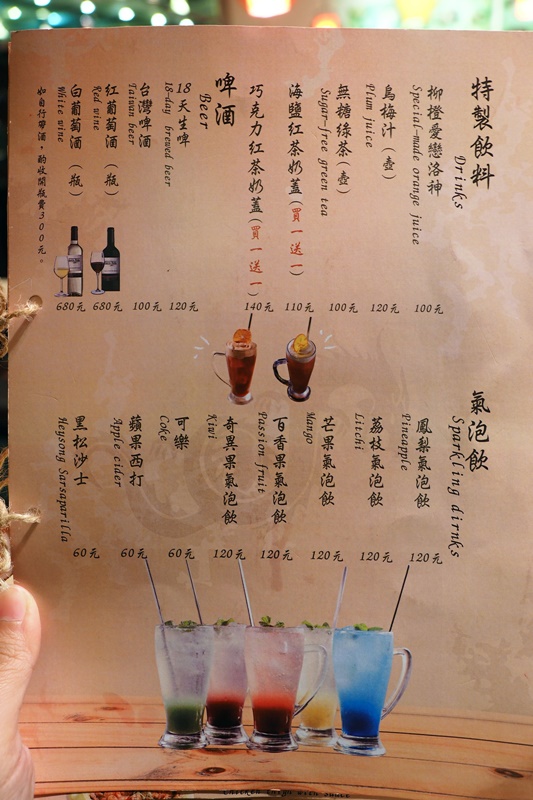 特製飲料
Drinks
柳橙愛戀洛神
Special-made orange juice
100元
烏梅汁（壺）
Plum juice
120元
無糖綠茶（壺）
Sugar-free green tea
100元
海鹽紅茶奶蓋（買一送一）
110元
巧克力紅茶奶蓋（買一送一）
140元
啤酒
Beer
18天生啤
18-day brewed beer
120元
台灣啤酒
Taiwan beer
100元
紅葡萄酒（瓶）
Red wine
680元
白葡萄酒（瓶）
White wine
680元
如自行帶酒，酌收開瓶費300元。
氣泡飲
Sparkling dirnks
鳳梨氣泡飲
Pineapple
120元
荔枝氣泡飲
Litchi
120元
芒果氣泡飲
Mango
120元
百香果氣泡飲
Passion fruit
120元
奇異果氣泡飲
Kiwi
120元
可樂
Coke
60元
蘋果西打
Apple cider
60元
黑松沙士
Heysong Sarsaparilla
60元